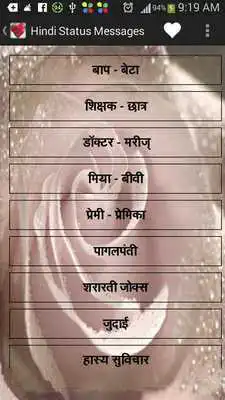 94% 9:19 AM
Hindi Status Messages
बाप - बेटा
शिक्षक - छात्र
डॉक्टर - मरीज्
मिया - बीवी
प्रेमी - प्रेमिका
पागलपंती
शरारती जोक्स
जुदाई
हास्य सुविचार